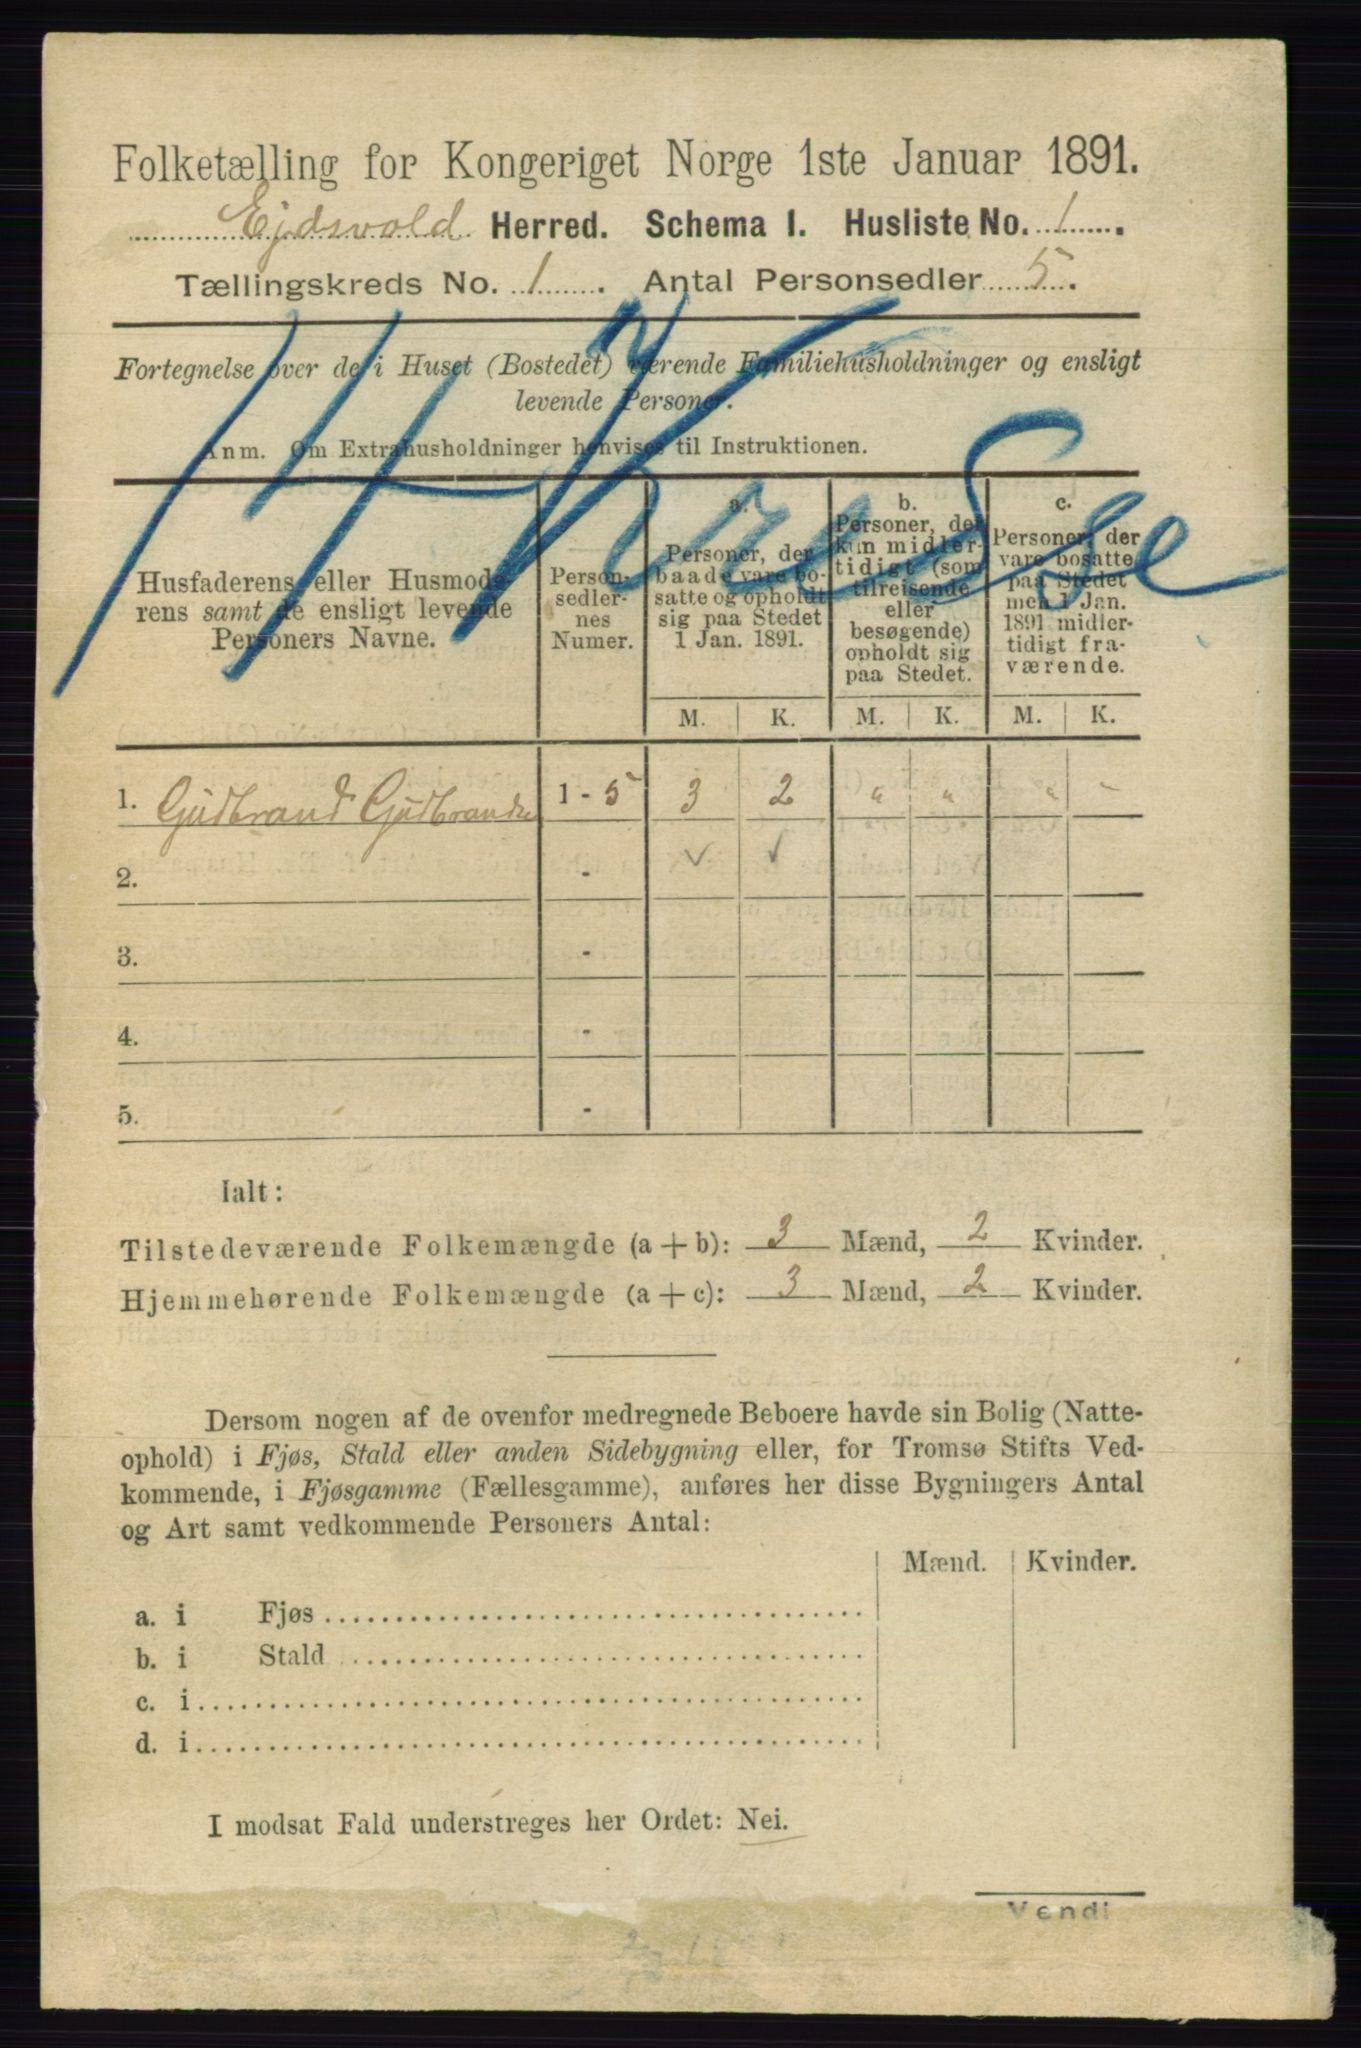 Folketælling for Kongeriget Norge 1ste Januar 1891.
Ejdsvold Herred. Schema I. Husliste No. 1.
Tællingskreds No. 1. Antal Personsedler 5.
Fortegnelse over de i Huset (Bostedet) værende Familiehusholdninger og ensligt
levende Personer.
Anm. Om Extrahusholdninger henvises til Instruktionen.
Husfaderens eller Husmode-
rens samt de ensligt levende
Personers Navne.
Person-
sedler-
nes
Numer.
a.
Personer, der
baade vare bo-
satte og opholdt
sig paa Stedet
1 Jan. 1891.
b.
Personer, der
kun midler-
tidigt (som
tilreisende
eller
besøgende)
opholdt sig
paa Stedet.
c.
Personer, der
vare bosatte
paa Stedet
men 1 Jan.
1891 midler-
tidigt fra-
værende.
M. K. M. K. M. K.
1. Gudbrand Gudbrandsen 1 - 5 3 2 " " " "
2. -
3. -
4. -
5. -
Ialt:
Tilstedeværende Folkemængde (a + b): 3 Mænd, 2 Kvinder.
Hjemmehørende Folkemængde (a + c): 3 Mænd, 2 Kvinder.
Dersom nogen af de ovenfor medregnede Beboere havde sin Bolig (Natte-
ophold) i Fjøs, Stald eller anden Sidebygning eller, for Tromsø Stifts Ved-
kommende, i Fjøsgamme (Fællesgamme), anføres her disse Bygningers Antal
og Art samt vedkommende Personers Antal:
Mænd. Kvinder.
a. i Fjøs
b. i Stald
c. i
d. i
I modsat Fald understreges her Ordet: Nei.
Vend!